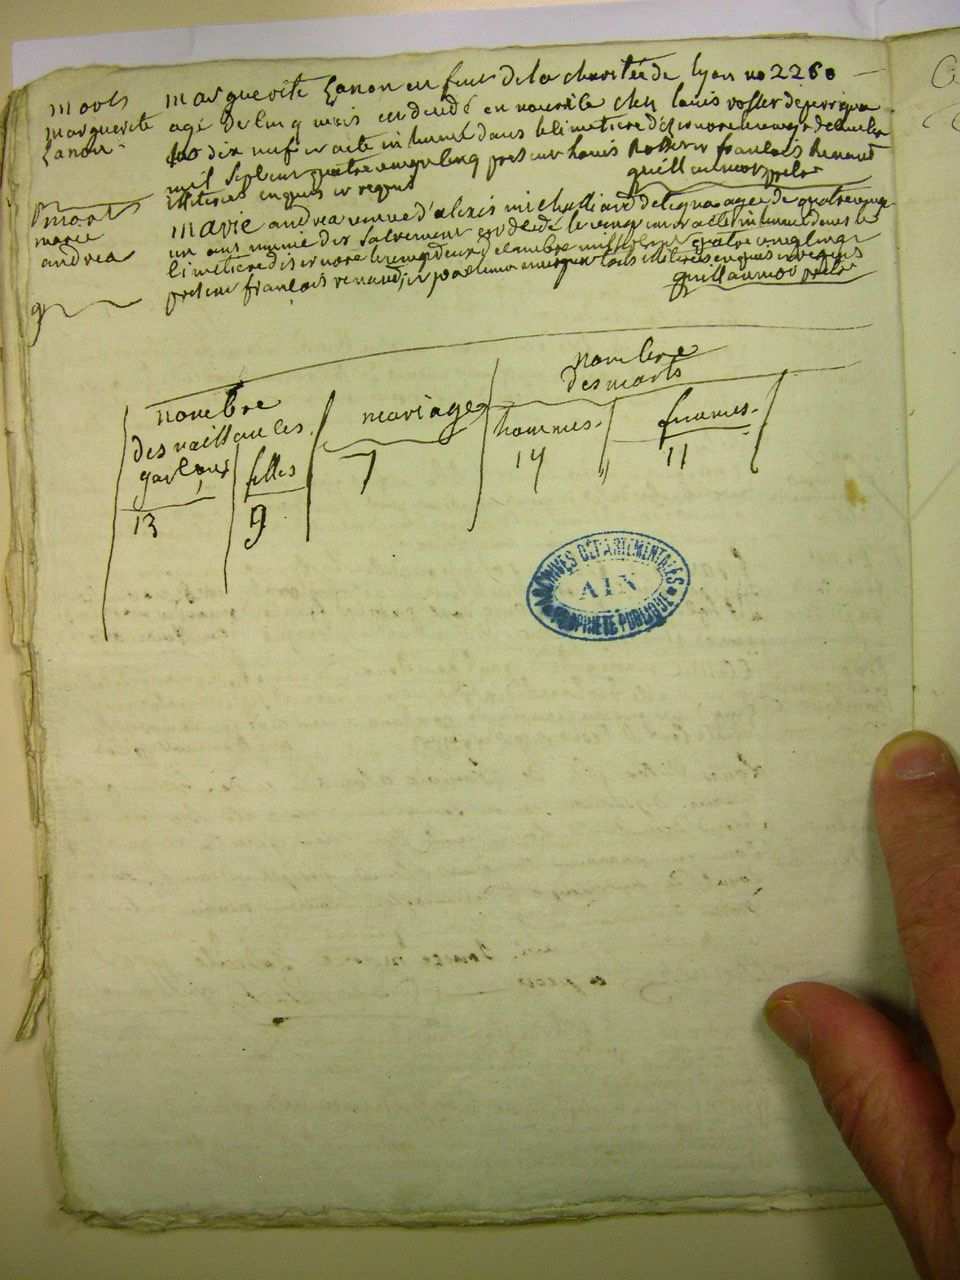 mort
marguerite
Zanon
marguerite Zanon enfent de la charitée de lyon no 2260
agé de cinq mois est décédé en nourice chez louis rosset
dix neuf et a eté inhumé dans le cimetiere
mil sept cent quatre vingt cinq present louis Rosset et françois Renaud
illiterés enquis et requis
guillaumot ptre
mort
marie
andrea
marie andrea veuve d'alexis michallard agée de quatre vingt
un ans munie des sacrements est decédé le vingt et a eté inhumé dans le
cimetiere le vingt deux decembre mil sept cent quatre vingt cinq
present françois renaud, tous illiterés enquis et requis
guillaumot ptre
nombre
des naissances
garçons
13
filles
9
mariages
7
nombre
des morts
hommes
14
femmes
11
ARCHIVES DÉPARTEMENTALES
AIN
PROPRIÉTÉ PUBLIQUE